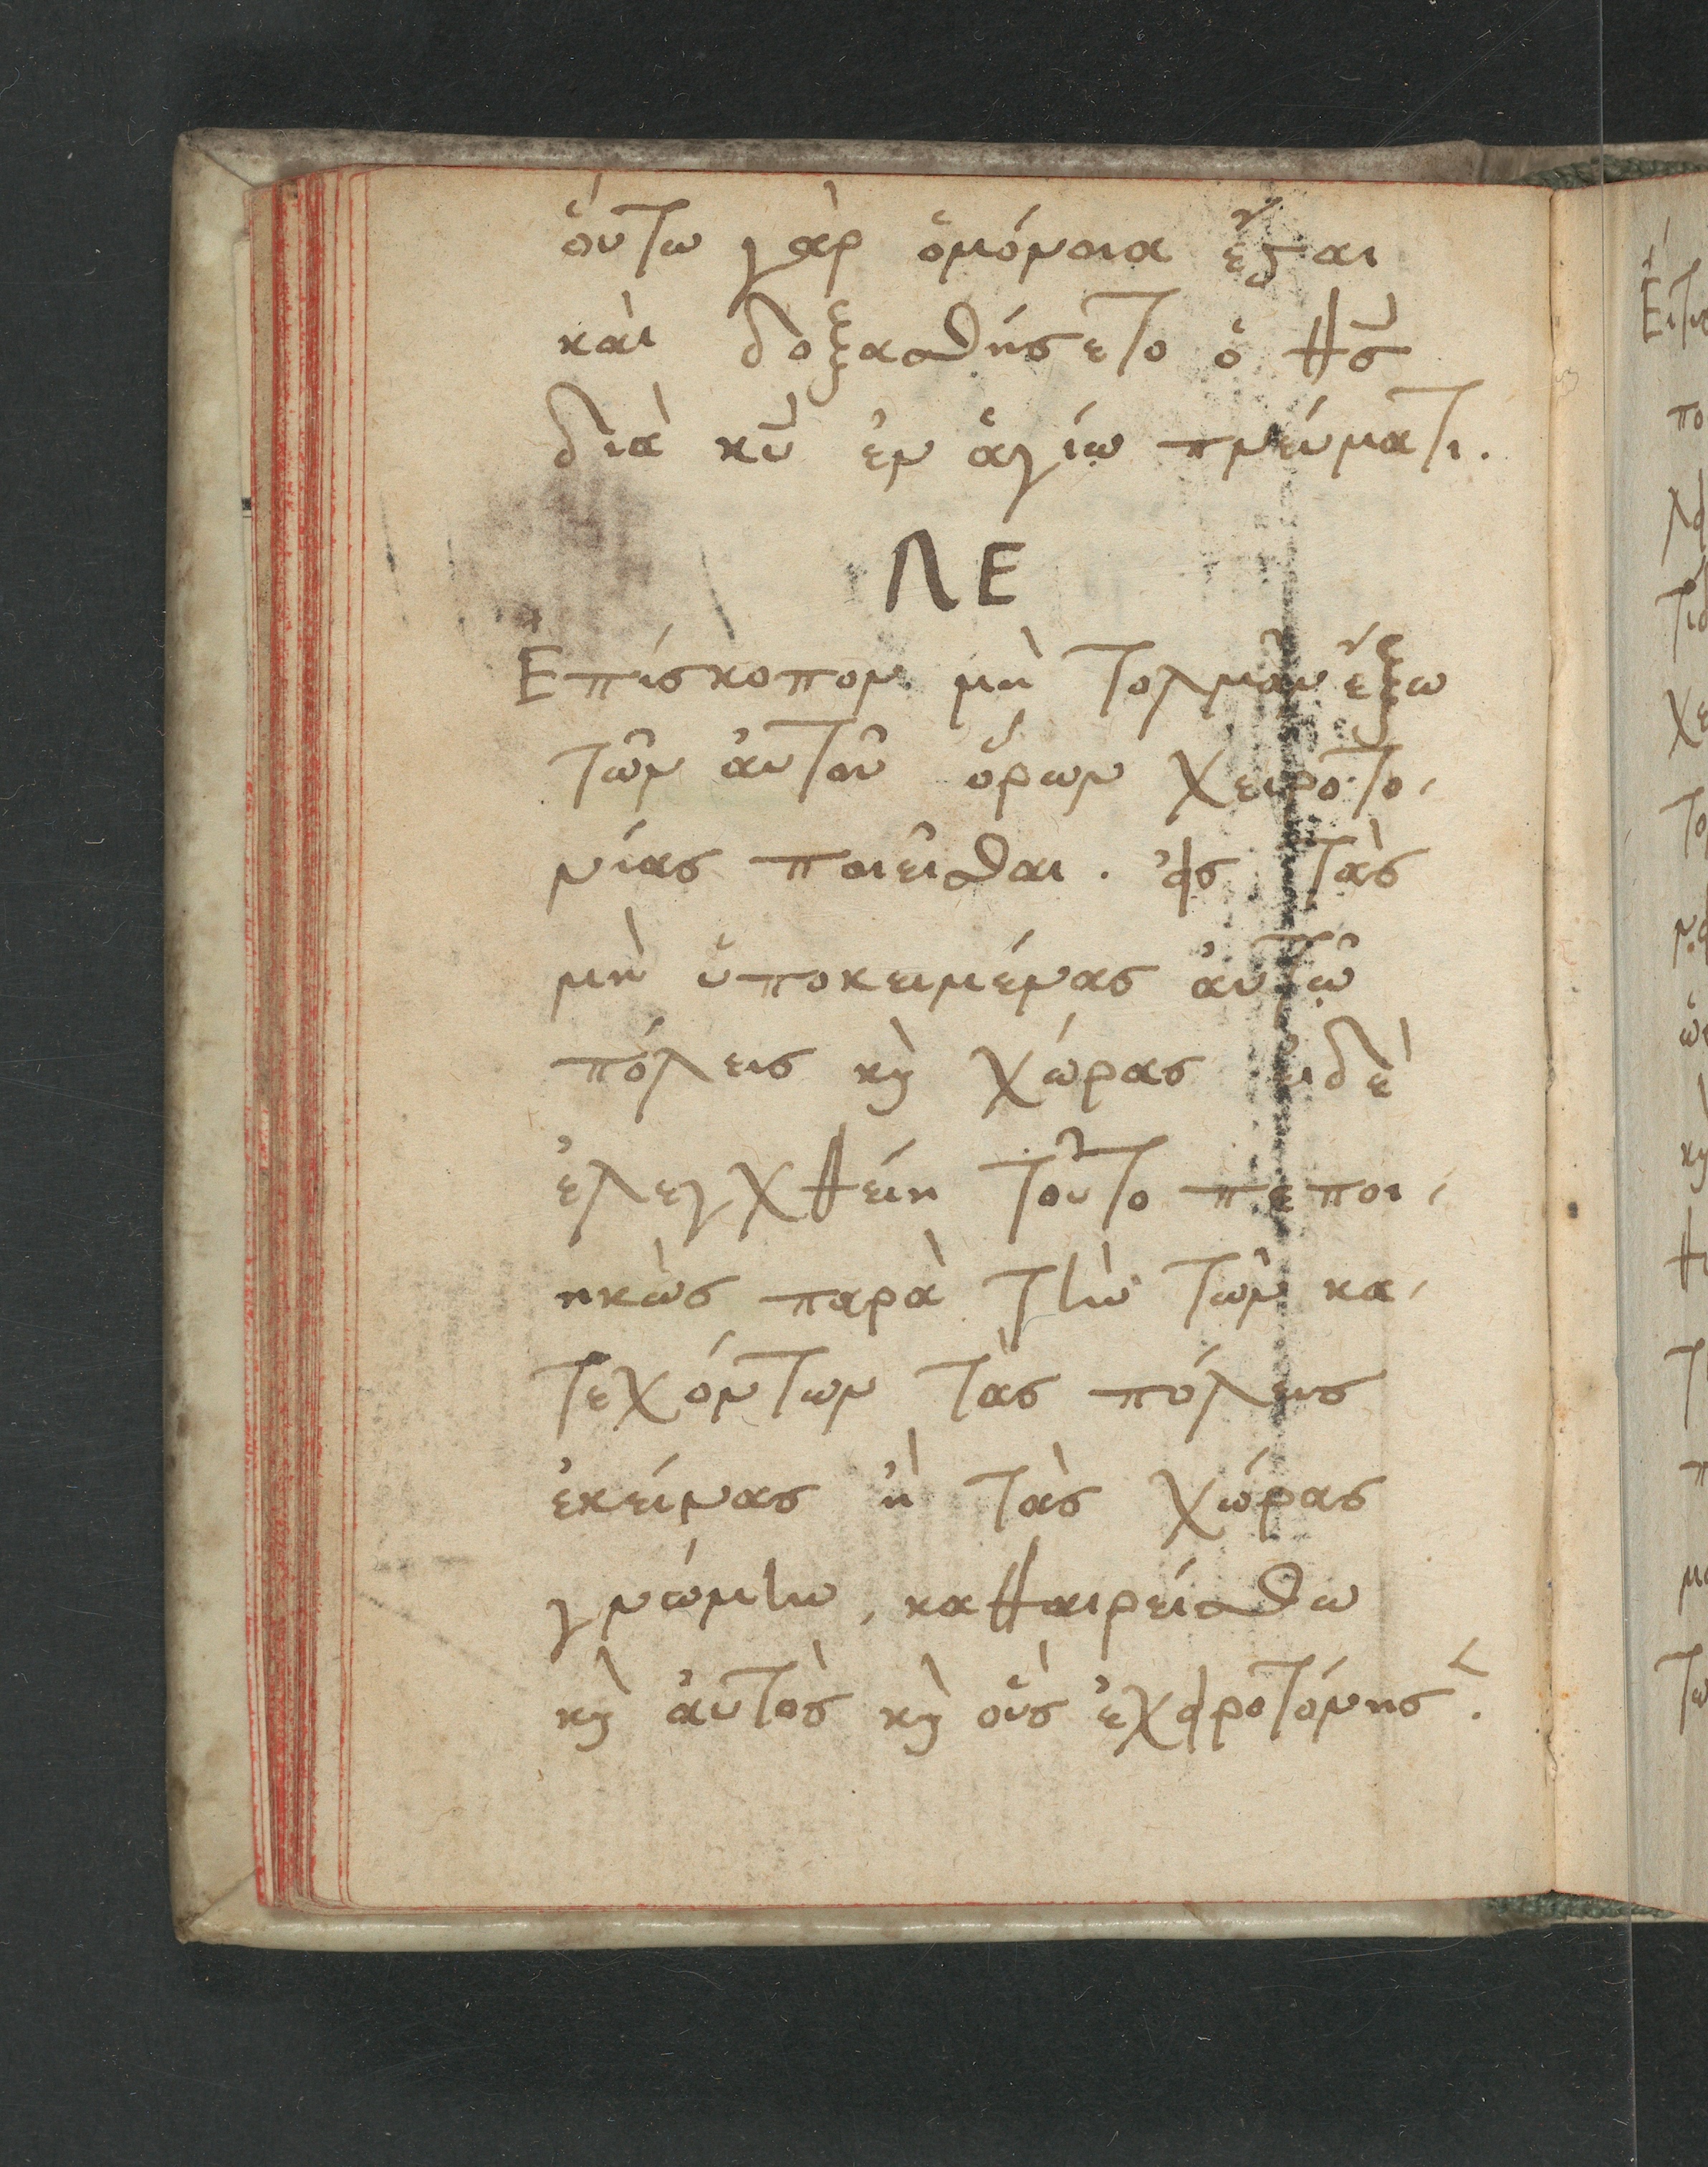 ὁύτω γὰρ ὁμόνοια ἔϛαι
καὶ δοξασθήσετο ὁ θς̄
διὰ κῡ ἐν ἁγίῳ πνεύματι.
ΛΕ
Ἐπίσκοπον μὴ τολμᾶν ἔξω
τῶν ἀυτοῦ ὅρων χειροτο-
νίας ποιεῖσθαι. ἐις τὰς
μὴ ὑποκειμένας ἀυτῷ
πόλεις κὴ χώρας ἐιδὲ
ἐλεγχθείη τοῦτο πεποι-
ηκὼς παρὰ τὴν τῶν κα-
τεχόντων τὰς πόλεις
ἐκείνας ἢ τὰς χώρας
γνώμην, καθαιρείσθω
κὴ ἀυτὸς κὴ οὓς ἐχειροτόνησ.